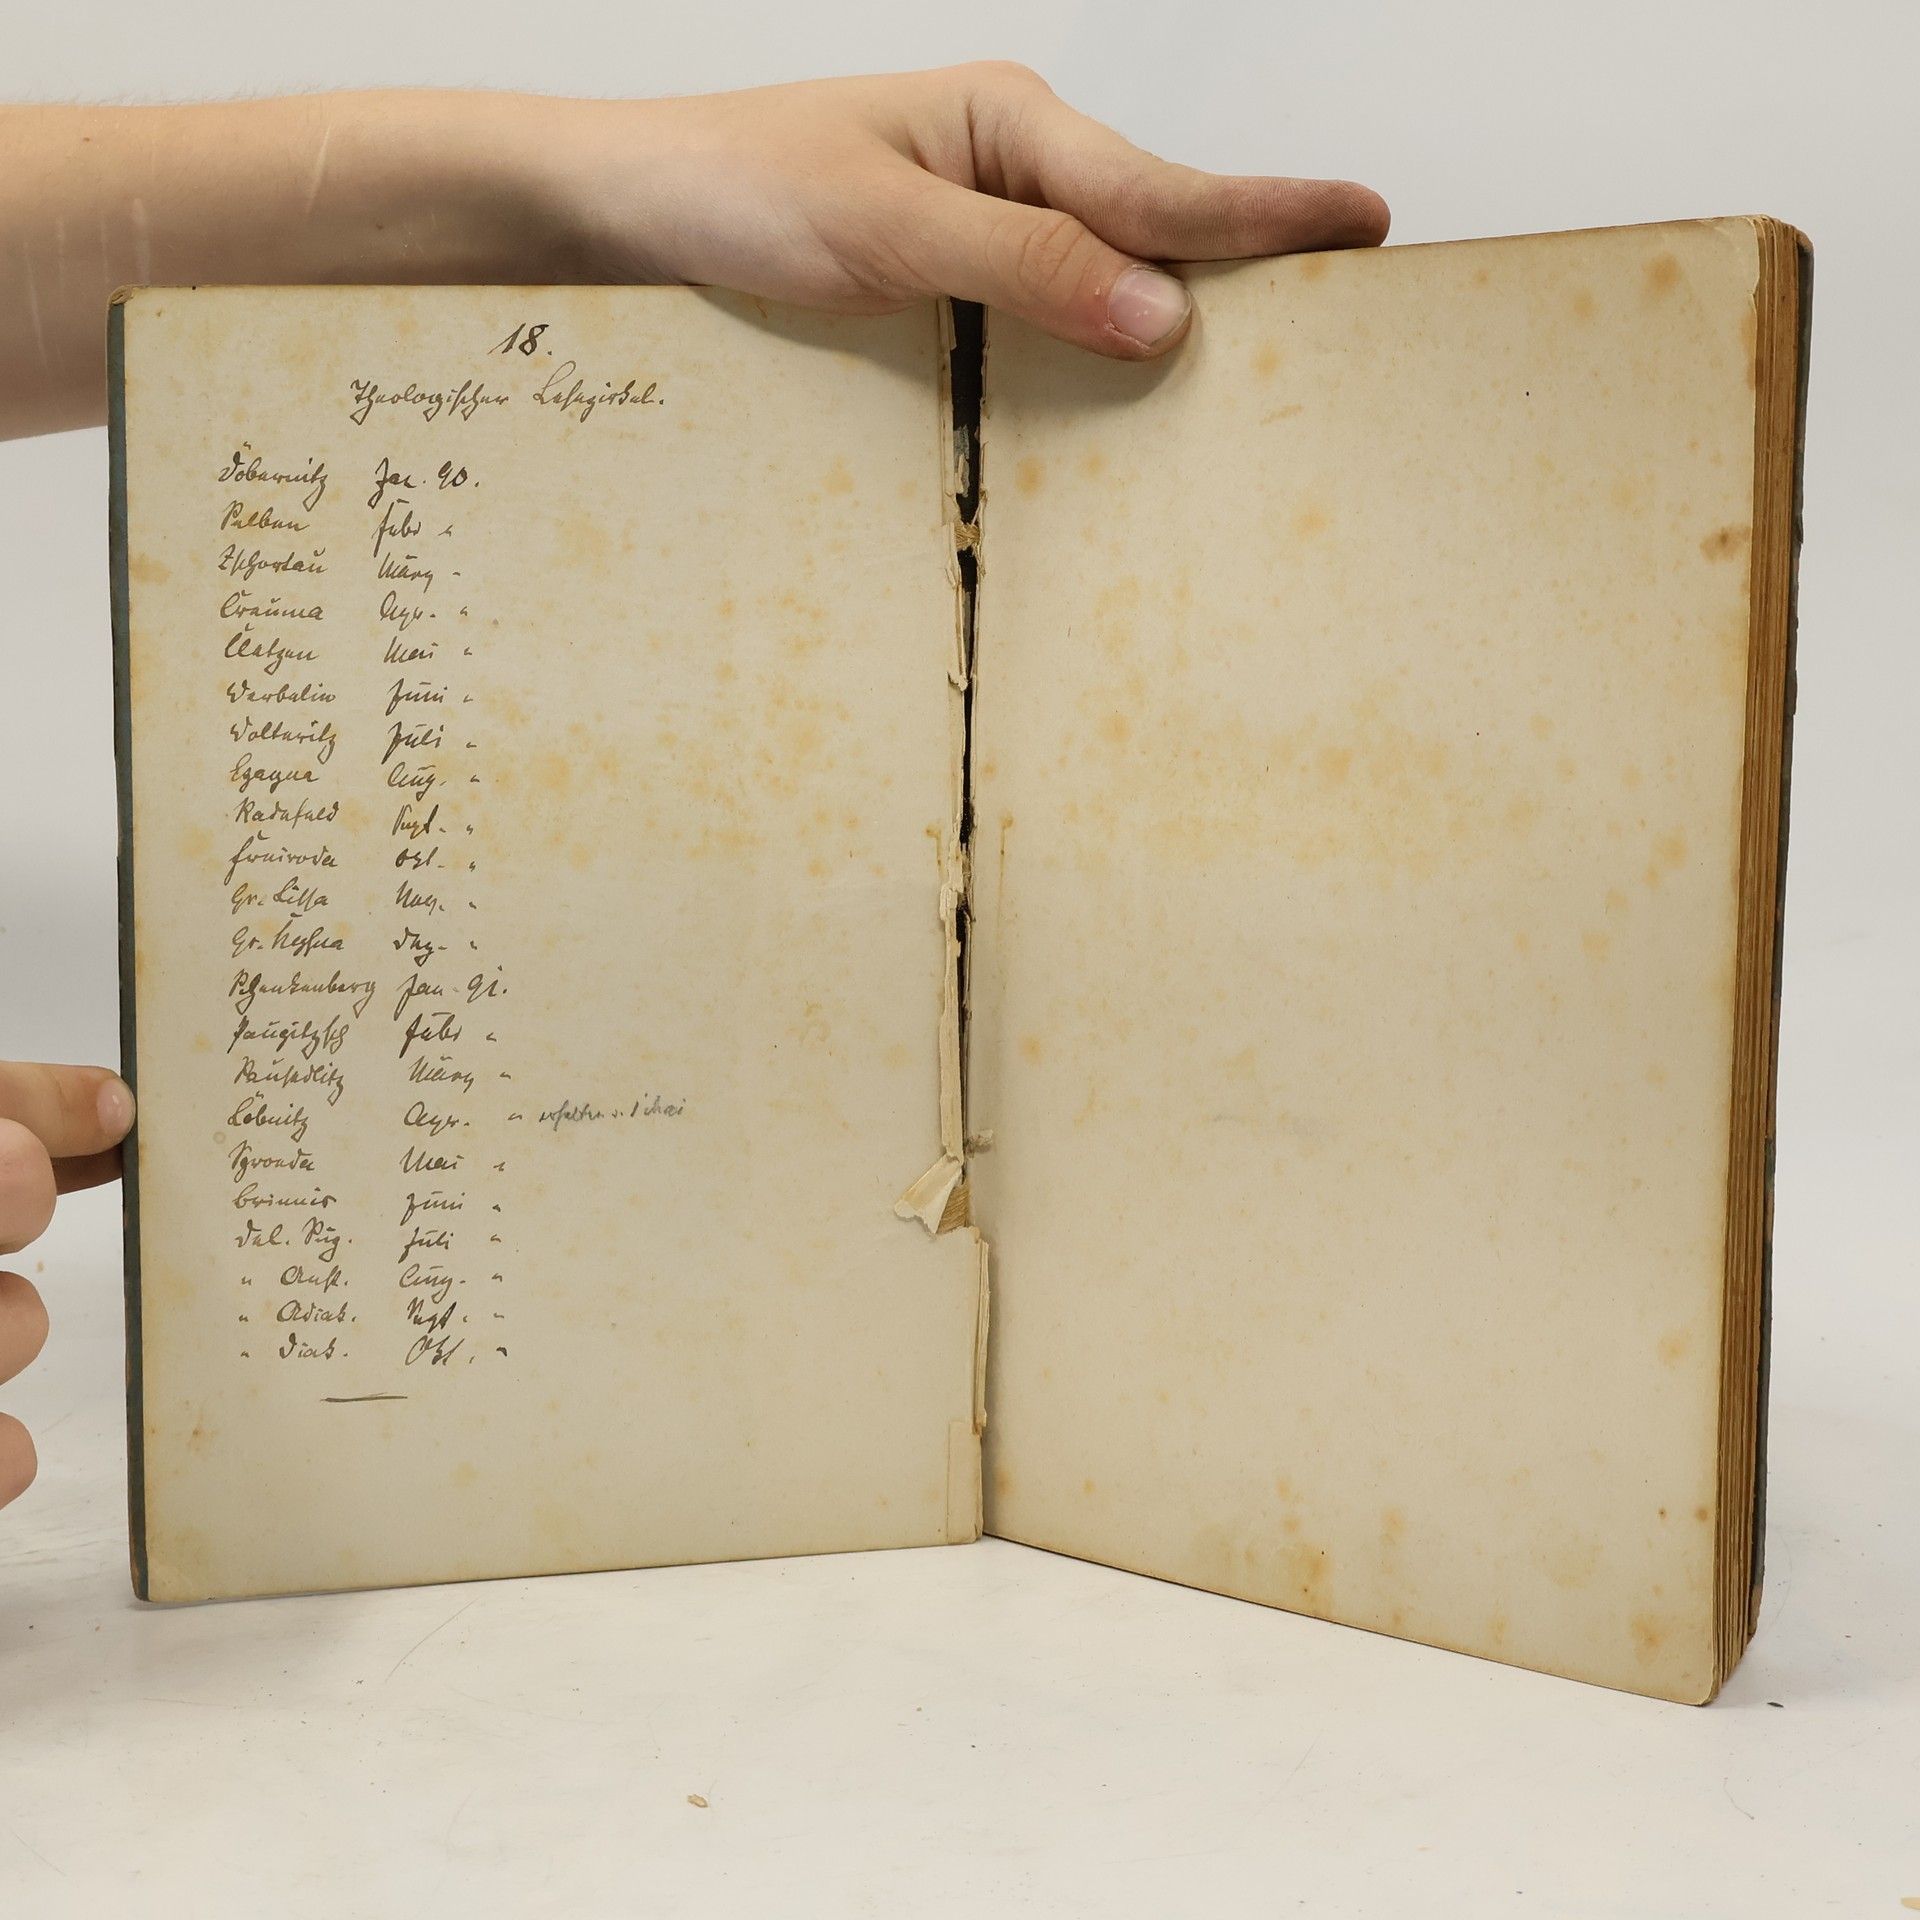 18.
Theologischer Lesezirkel.
Döbernitz Jan. 90.
Selben Febr "
Zschortau März "
Creuma Apr. "
Cletzen Mai "
Werbelin Juni "
Wolteritz Juli "
Radefeld Sept. "
Freiroda Okt. "
Gr. Lissa Nov. "
Gr. Dez. "
Schenkenberg Jan. 91.
Paupitzsch Febr "
Sausedlitz März "
Löbnitz Apr. " erhalten d. 1 Mai
Spröda Mai "
Brinnis Juni "
Del. Sup. Juli "
" Aug. "
" Adiak. Sept. "
" Diak. Okt. "